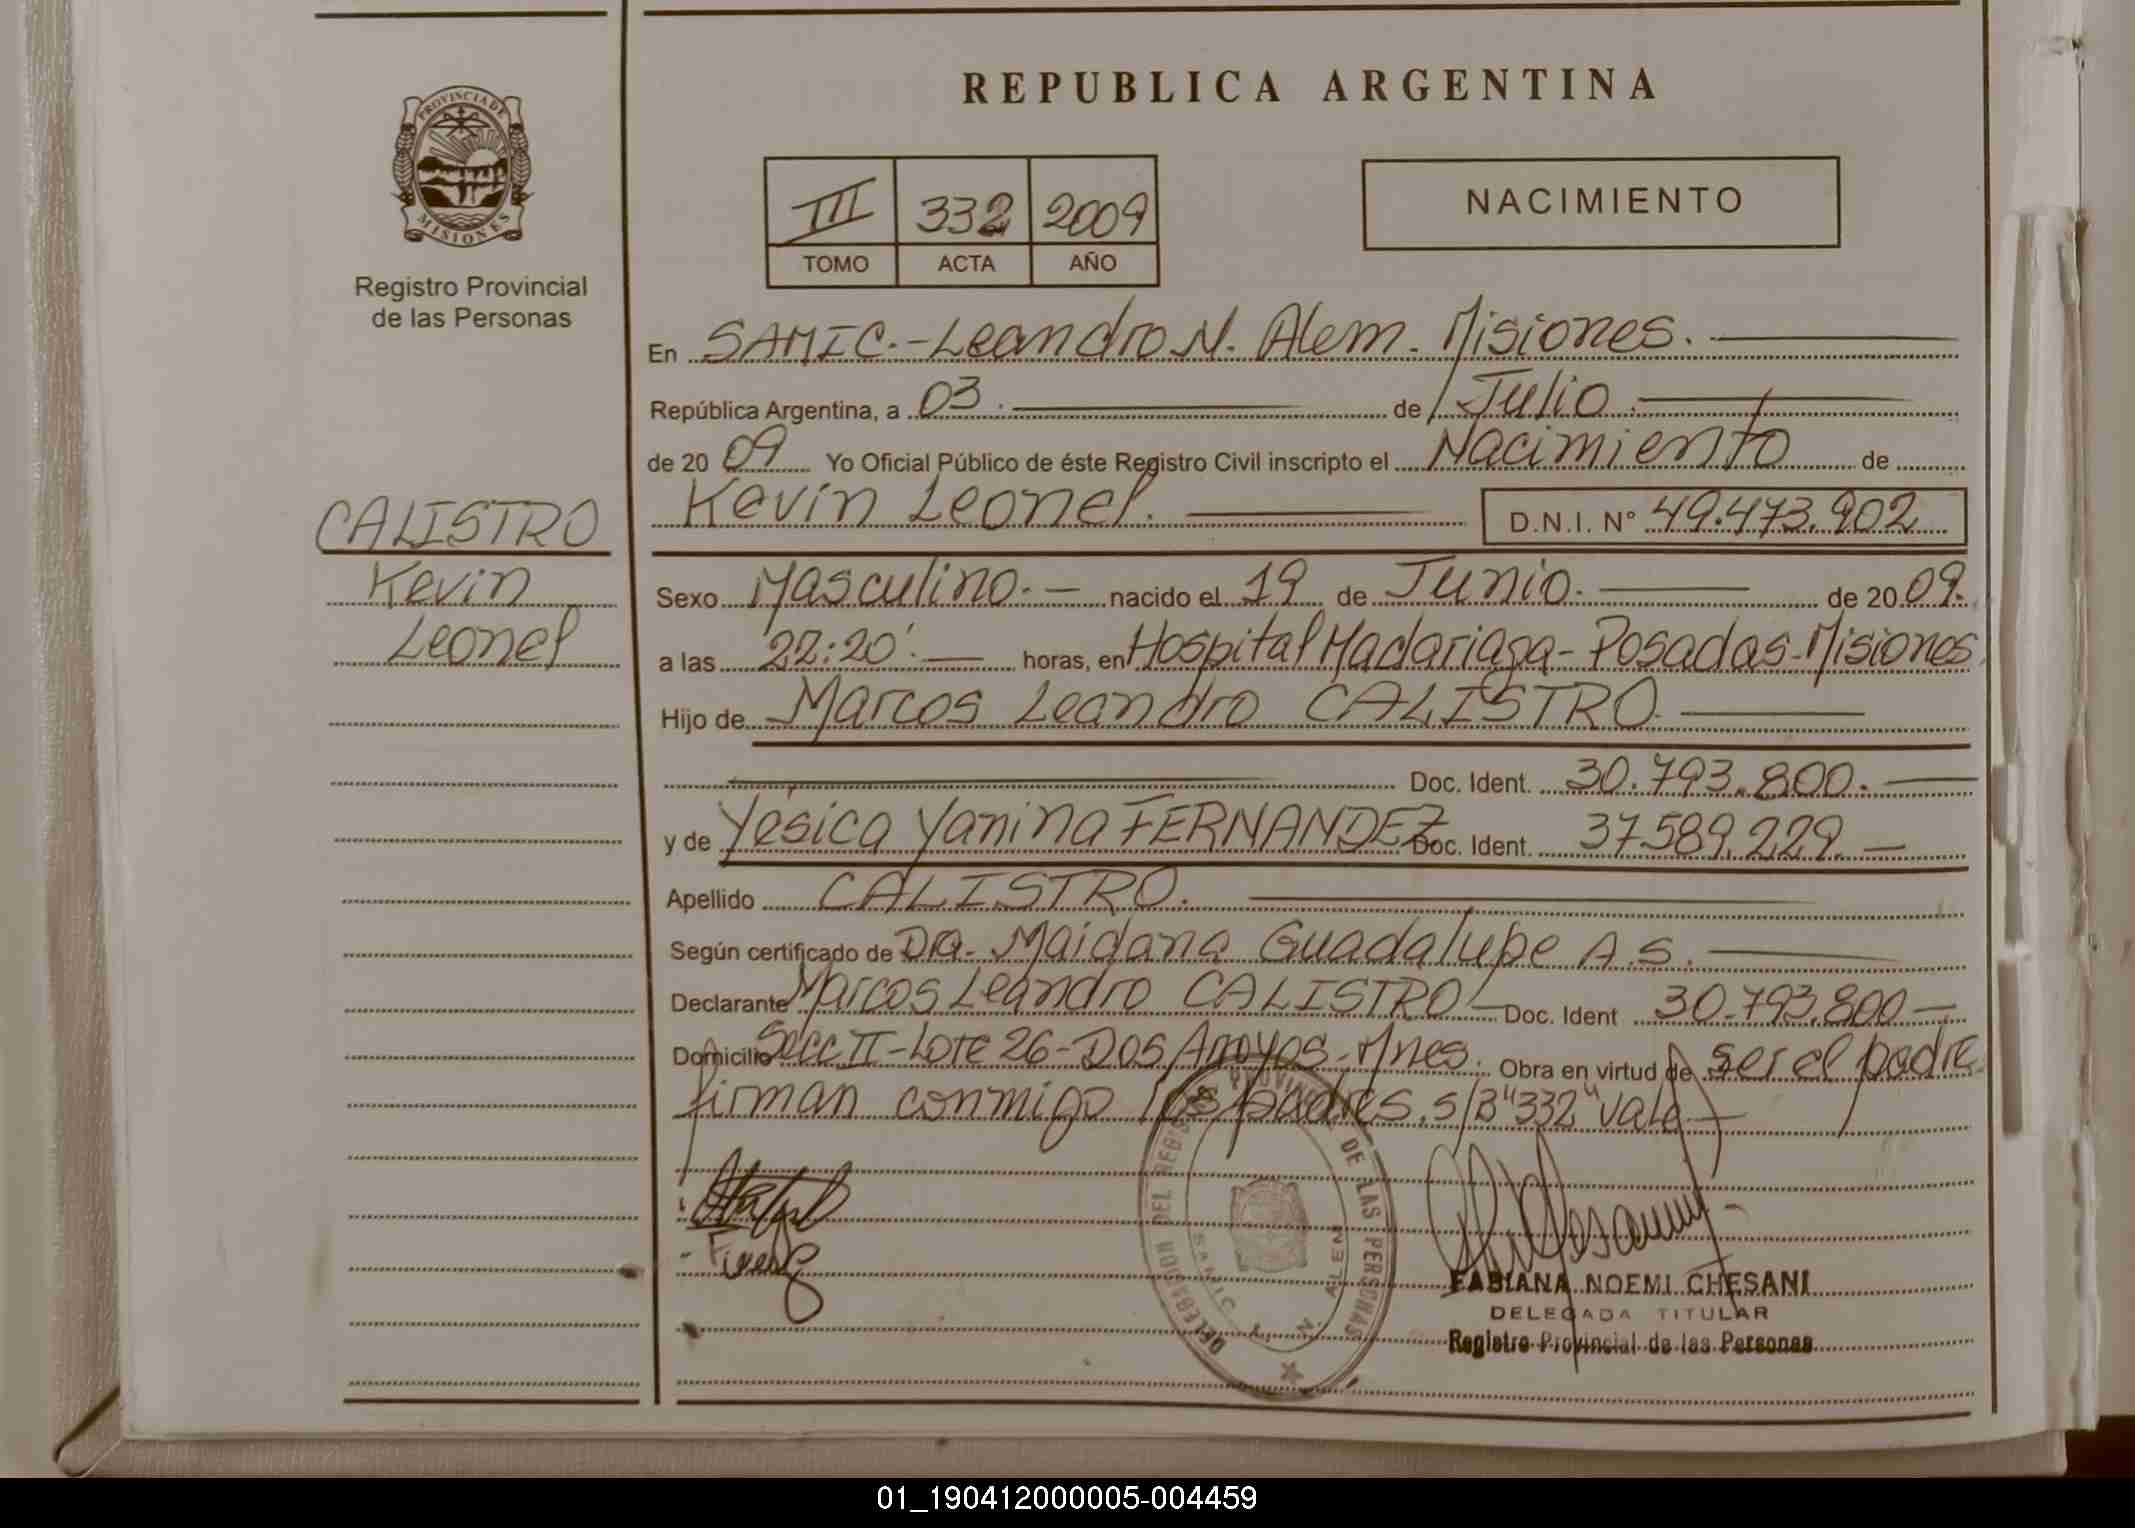 REPUBLICA ARGENTINA
PROVINCIA DE
MISIONES
Registro Provincial
de las Personas
III 332 2009
TOMO ACTA AÑO
NACIMIENTO
En SAMIC.-Leandro N. Alem. Misiones.
República Argentina, a 03. de Julio.
de 20 09 Yo Oficial Público de éste Registro Civil inscripto el Nacimiento de
Kevin Leonel. D.N.I. N° 49.473.902
CALISTRO
Kevin
Leonel
Sexo Masculino.- nacido el 19 de Junio. de 20 09.
a las 22:20'. horas, en Hospital Madariaga-Posadas-Misiones
Hijo de Marcos Leandro CALISTRO.
Doc. Ident. 30.793.800.
y de Yesica Yanina FERNANDEZ Doc. Ident. 37.589.229.-
Apellido CALISTRO.
Según certificado de Dra. Maidana Guadalupe A.S.
Declarante Marcos Leandro CALISTRO- Doc. Ident 30.793.800-
Domicilio Secc II-Lote 26-Dos Arroyos-Mnes. Obra en virtud de ser el padre
firman conmigo los padres. s/B "332" vale-
DELEGACION DEL REG. PROVINCIAL DE LAS PERSONAS
SAMIC L. N. ALEM
FABIANA NOEMI CHESANI
DELEGADA TITULAR
Registro Provincial de las Personas
01_190412000005-004459